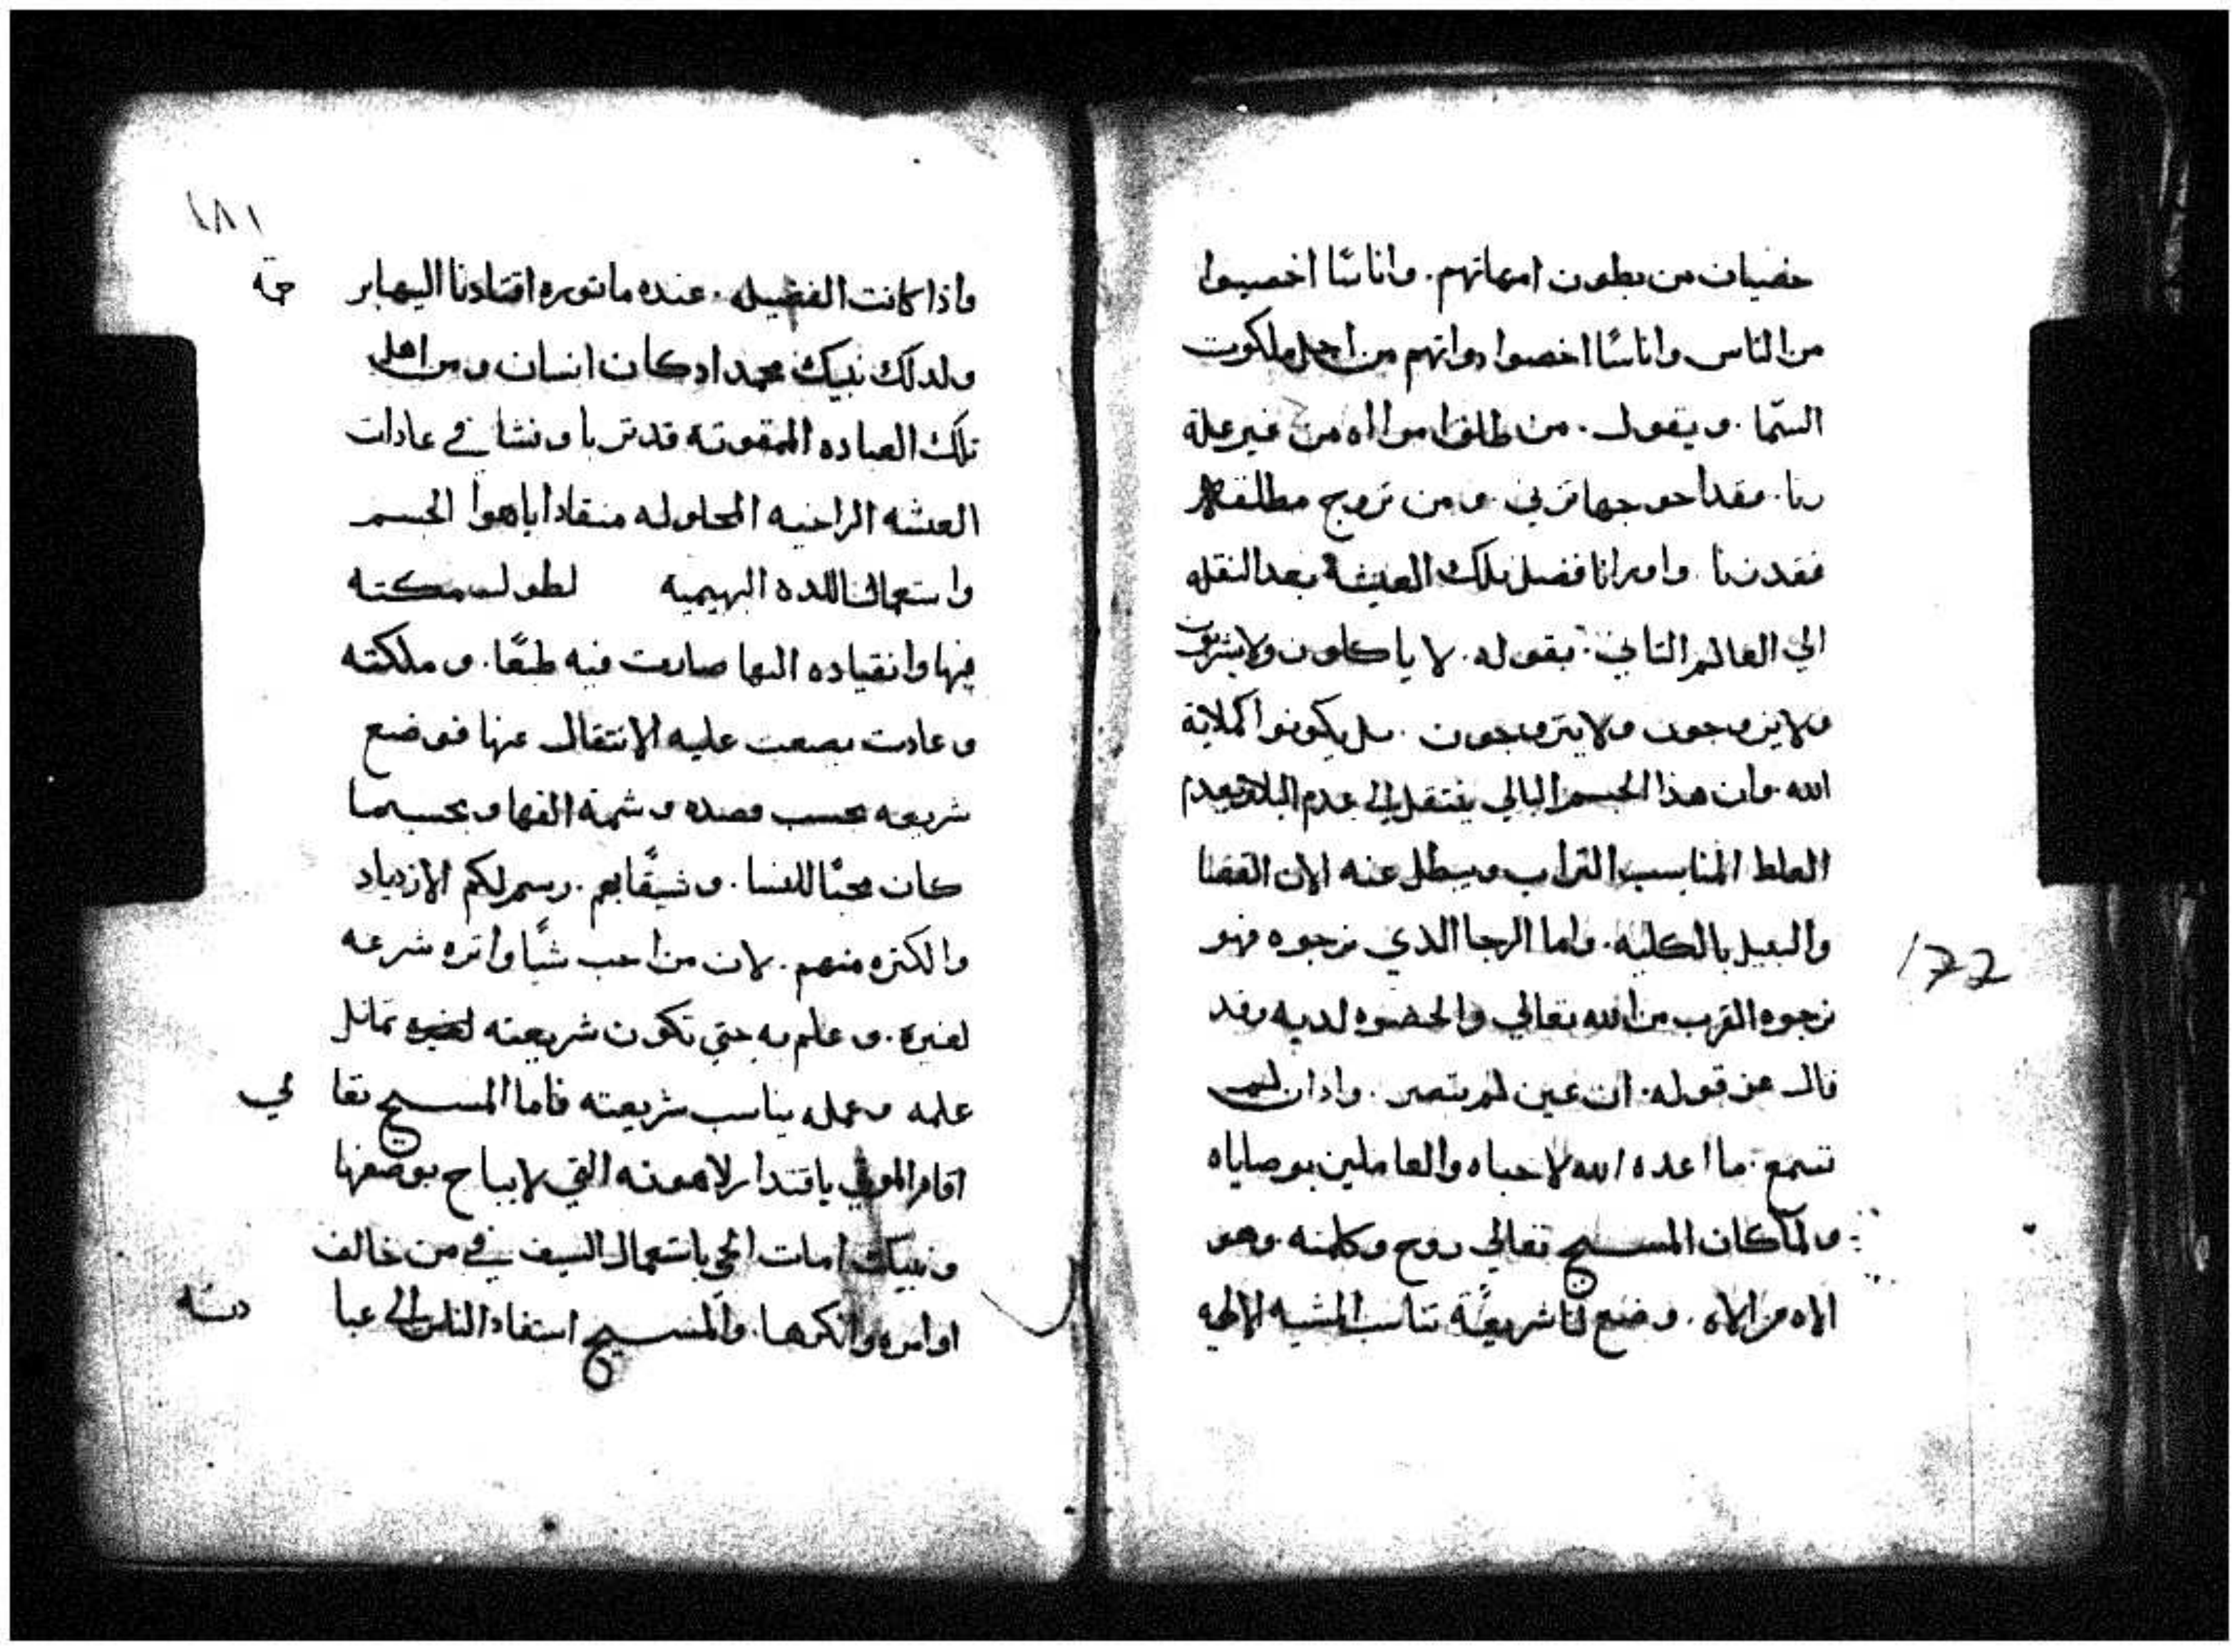 خصيان من بطون امهاتهم. واناسًا اخصيوا
من الناس واناسًا اخصوا دواتهم من اجل ملكوت
السّما. ويقول. من طلق امراه من غير علة
زنا. فقد احوجها تزني. ومن تزوج مطلقه
فقد زنا. وامرانا فضل تلك العيشه بعد النقله
الي العالم التاني. بقوله. لا ياكلون ولا يشربون
ولا يزوجون ولا يتزوجون. بل يكونوا كملايكة
الله. وان هذا الجسم البالي ينتقل الي عدم البلا وبعدم
الغلط المناسب التراب ويبطل عنه الان القضا
والميل بالكليه. واما الرجا الذي نرجوه فهو
نرجوه القرب من الله تعالي والحضوه لديه وقد
قال عن قوله. ان عين لم تبصر. واذان لم
تسمع. ما اعده الله لاحباه والعاملين بوصاياه
ولما كان المسيح تعالي روح وكلمته. وهو
الاه من الاه. وضع لنا شريعًة تناسب المشيه الالهيه
172
١٨١
واذا كانت الفضيله. عنده ماثوره اقتادنا اليها برحمته
ولدلك نبيك محمد اد كان انسان ومن اهل
تلك العباده الممقوته قد تربا ونشا في عادات
العيشه الراخيه المحلوله منقادا اياهوا الجسم
واستعمالنا اللده البهيميه لطول مكته
فيها وانقياده اليها صارت فيه طبعًا. وملكته
وعادت بصعت عليه الانتقال عنها فوضع
شريعه بحسب قصده وشيمة الفها وبحسبما
كان محبًا للنسا. وشيقًا بهم. رسم لكم الازدياد
والكتره منهم. لان من احب شيًا واثره شرعه
لغيره. وعلم به حتي تكون شريعته لغيره تماثل
علمه وعمله يناسب شريعته فاما المسيح تعالي
اقام الموتي باقتدار لاهوته التي لا يباح بوصفها
ونبيك امات الحي باستعمال السيف في من خالف
اوامره وانكرها. والمسيح استفاد الناس الي عبادته